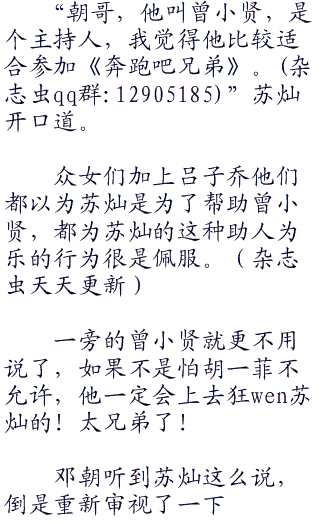 “朝哥，他叫曾小贤，是
个主持人，我觉得他比较适
合参加《奔跑吧兄弟》。(杂
志虫qq群:12905185)”苏灿
开口道。
众女们加上吕子乔他们
都以为苏灿是为了帮助曾小
贤，都为苏灿的这种助人为
乐的行为很是佩服。（杂志
虫天天更新）
一旁的曾小贤就更不用
说了，如果不是怕胡一菲不
允许，他一定会上去狂wen苏
灿的！太兄弟了！
邓朝听到苏灿这么说，
倒是重新审视了一下